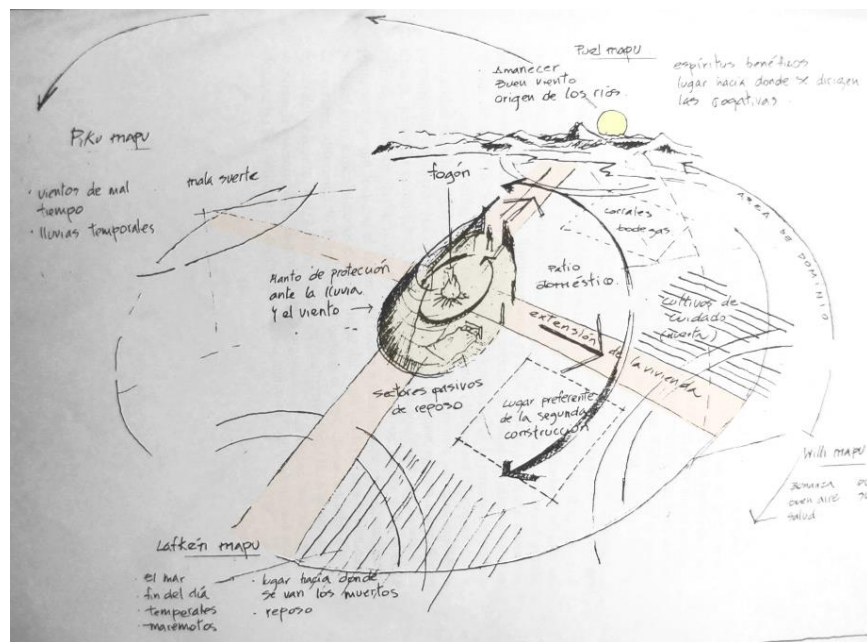 Puel mapu
· Amanecer
Buen viento
origen de los ríos.
espíritus benéficos
lugar hacia donde se dirigen
las rogativas.
Piku mapu
· vientos de mal
tiempo
· lluvias temporales
mala suerte
fogón
Manto de protección
ante la lluvia
y el viento
corrales
bodegas
Patio
doméstico.
AREA DE DOMINIO
Cultivos de
cuidado
(huerta)
extensión de la vivienda
sectores pasivos
de reposo
Lugar preferente
de la segunda
construcción
Willi mapu
Bonanza
buen aire
salud
Lafken mapu
· el mar
· fin del día
· temporales
· maremotos
· lugar hacia donde
se van los muertos
· reposo